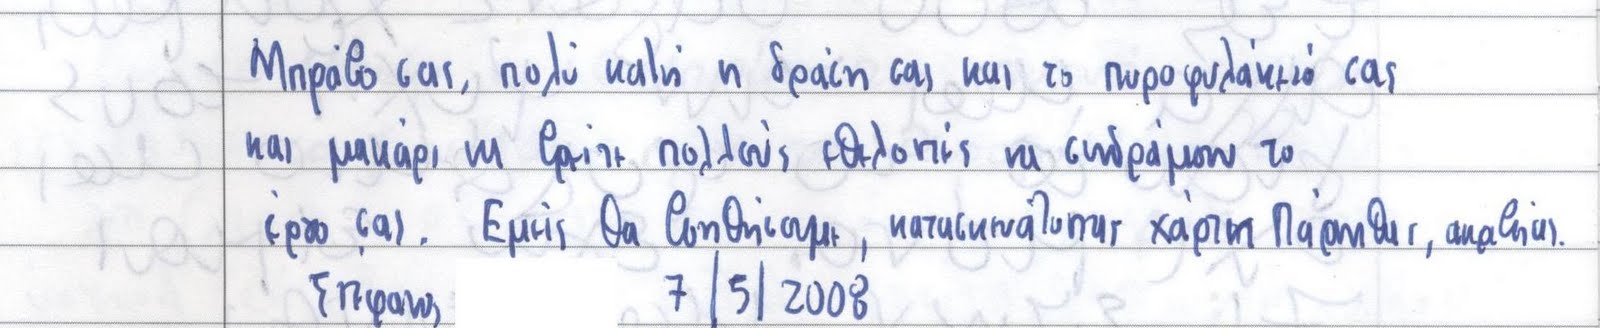 Μπράβο σας, πολύ καλή η δράση σας και το πυροφυλάκειό σας
και μακάρι να βρείτε πολλούς εθελοντές να συνδράμουν το
έργο σας. Εμείς θα βοηθήσουμε, κατασκευάζοντας χάρτη Πάρνηθας, ακριβείας.
Στέφανος 7/5/2008